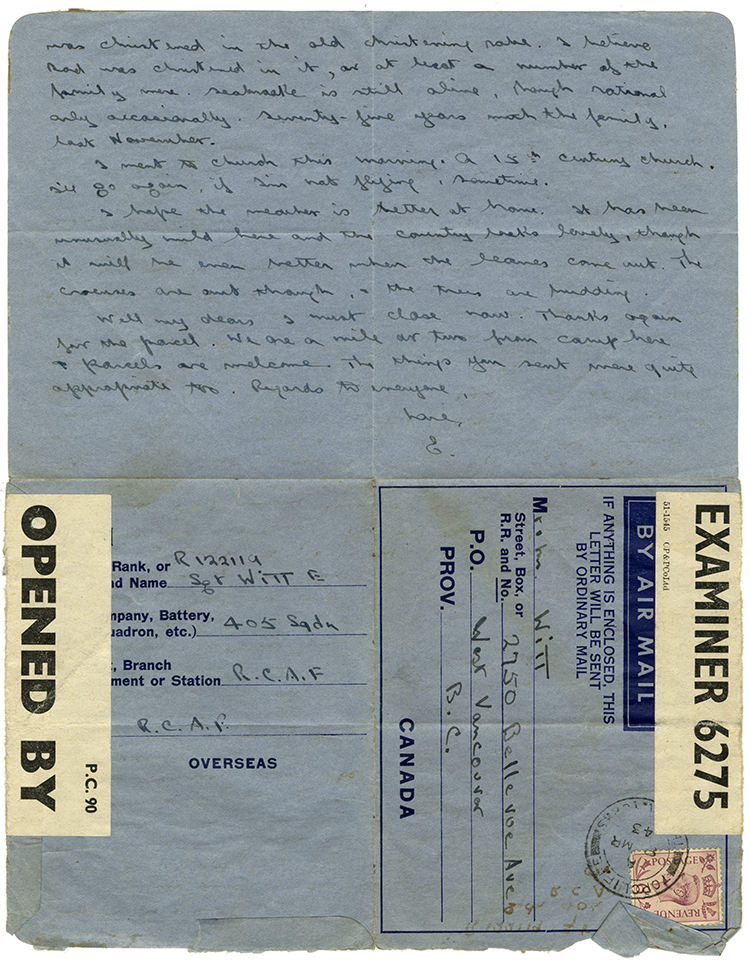 was christened in the old christening robe. I believe
Dad was christened in it, or at least a number of the
family were. is still alive, though rational
only occasionally. Seventy-five years with the family,
last November.
I went to church this morning. A 15th century church.
I'll go again, if I'm not flying, sometime.
I hope the weather is better at home. It has been
unusually mild here and the country looks lovely, though
it will be even better when the leaves come out. The
crocuses are out though, & the trees are budding.
Well my dears I must close now. Thanks again
for the parcel. We are a mile or two from camp here
& parcels are welcome. The things you sent were quite
appropriate too. Regards to everyone,
Love,
E.
OPENED BY
P.C. 90
Rank, or R122119
nd Name Sgt Witt E
mpany, Battery,
uadron, etc.) 405 Sqdn
, Branch
ment or Station R.C.A.F
R.C.A.F.
OVERSEAS
EXAMINER 6275
51-1545 CP&PCoLtd
BY AIR MAIL
IF ANYTHING IS ENCLOSED, THIS
LETTER WILL BE SENT
BY ORDINARY MAIL
M Witt
Street, Box, or
R.R. and No. 2750 Bellevue Ave
P.O. West Vancouver
PROV. B.C.
CANADA
TOPCLIFFE
MR
43
POSTAGE
REVENUE